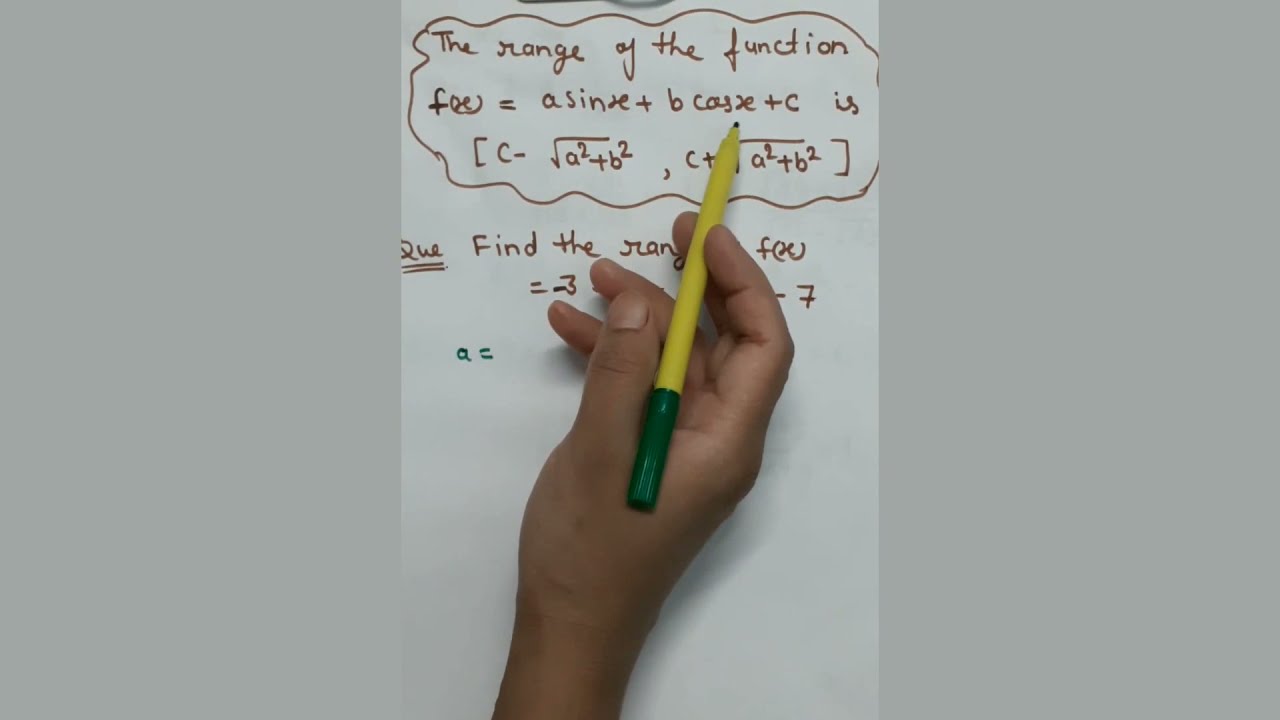 The range of the function
f(x) = a sinx + b cosx + c is
[ c - √a²+b² , c + √a²+b² ]
Que Find the range f(x)
= -3 - 7
a =